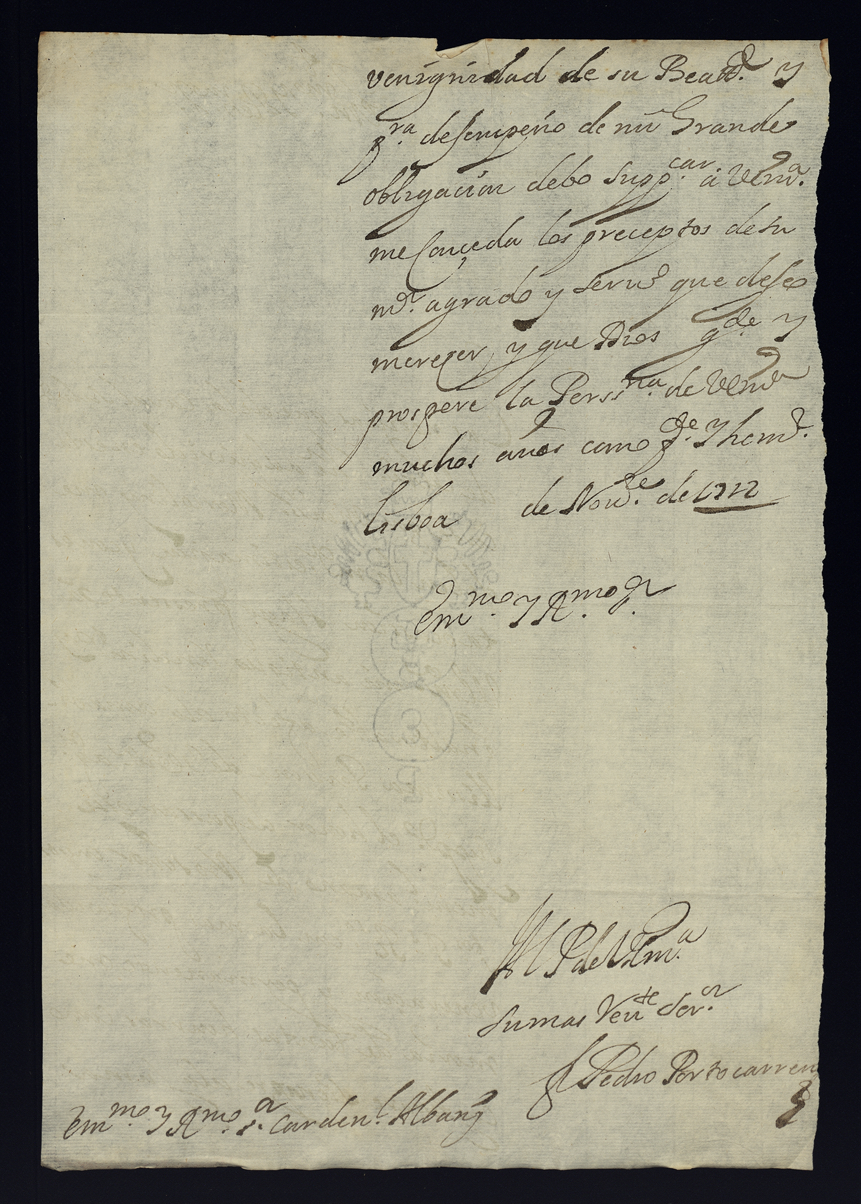 venignidad de su Beatd. y
pra desempeño de mi Grande
obligacion debo suppcar. a VEma.
me Conçeda los preceptos de su
mr. agrado y servo que deseo
mereçer, y que Dios gde y
prospere la Perssna. de VEma
muchos años como pde. y hemr.
Lisboa de Nove. de 1712
Emmo. y Rmo Sr
B l P de VEma
su mas Revte Seror
Pedro Portocarrero
Emmo. y Rmo. Sr. Cardenl. Albany